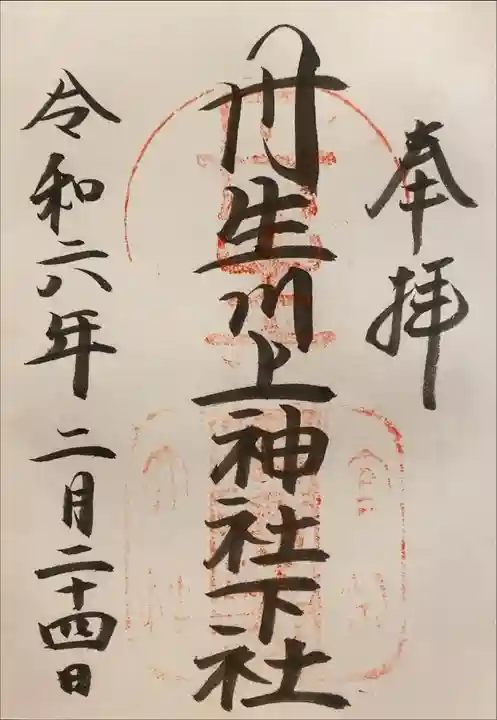 奉拝
丹生川上神社下社
令和六年二月二十四日